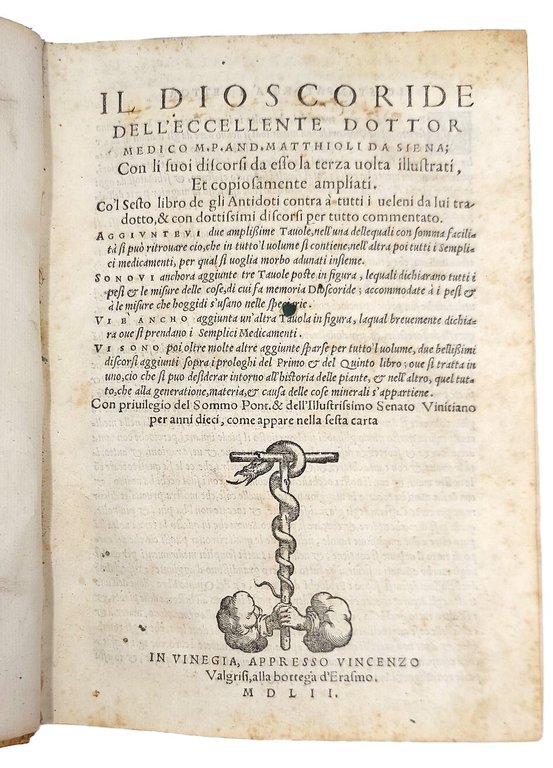 IL DIOSCORIDE
DELL'ECCELLENTE DOTTOR
MEDICO M.P. AND. MATTHIOLI DA SIENA;
Con li suoi discorsi da esso la terza uolta illustrati,
Et copiosamente ampliati.
Co'l Sesto libro de gli Antidoti contra à tutti i ueleni da lui tra-
dotto, & con dottissimi discorsi per tutto commentato.
AGGIVNTEVI due amplissime Tauole, nell'una dellequali con somma facili-
tà si può ritrouare cio, che in tutto'l uolume si contiene, nell'altra poi tutti i Sempli-
ci medicamenti, per qual si uoglia morbo adunati insieme.
SONOVI anchora aggiunte tre Tauole poste in figura, lequali dichiarano tutti i
pesi & le misure delle cose, di cui fa memoria Dioscoride; accommodate à i pesi &
à le misure che hoggidi s'usano nelle speciarie.
VI E ANCHO aggiunta un'altra Tauola in figura, laqual breuemente dichia-
ra oue si prendano i Semplici Medicamenti.
VI SONO poi oltre molte altre aggiunte sparse per tutto'l uolume, due bellissimi
discorsi aggiunti sopra i prologhi del Primo & del Quinto libro; oue si tratta in
uno, cio che si puo desiderar intorno all'historia delle piante, & nell'altro, quel tut-
to, che alla generatione, materia, & causa delle cose minerali s'appartiene.
Con priuilegio del Sommo Pont. & dell'Illustrissimo Senato Vinitiano
per anni dieci, come appare nella sesta carta
IN VINEGIA, APPRESSO VINCENZO
Valgrisi, alla bottega d'Erasmo.
MDLII.